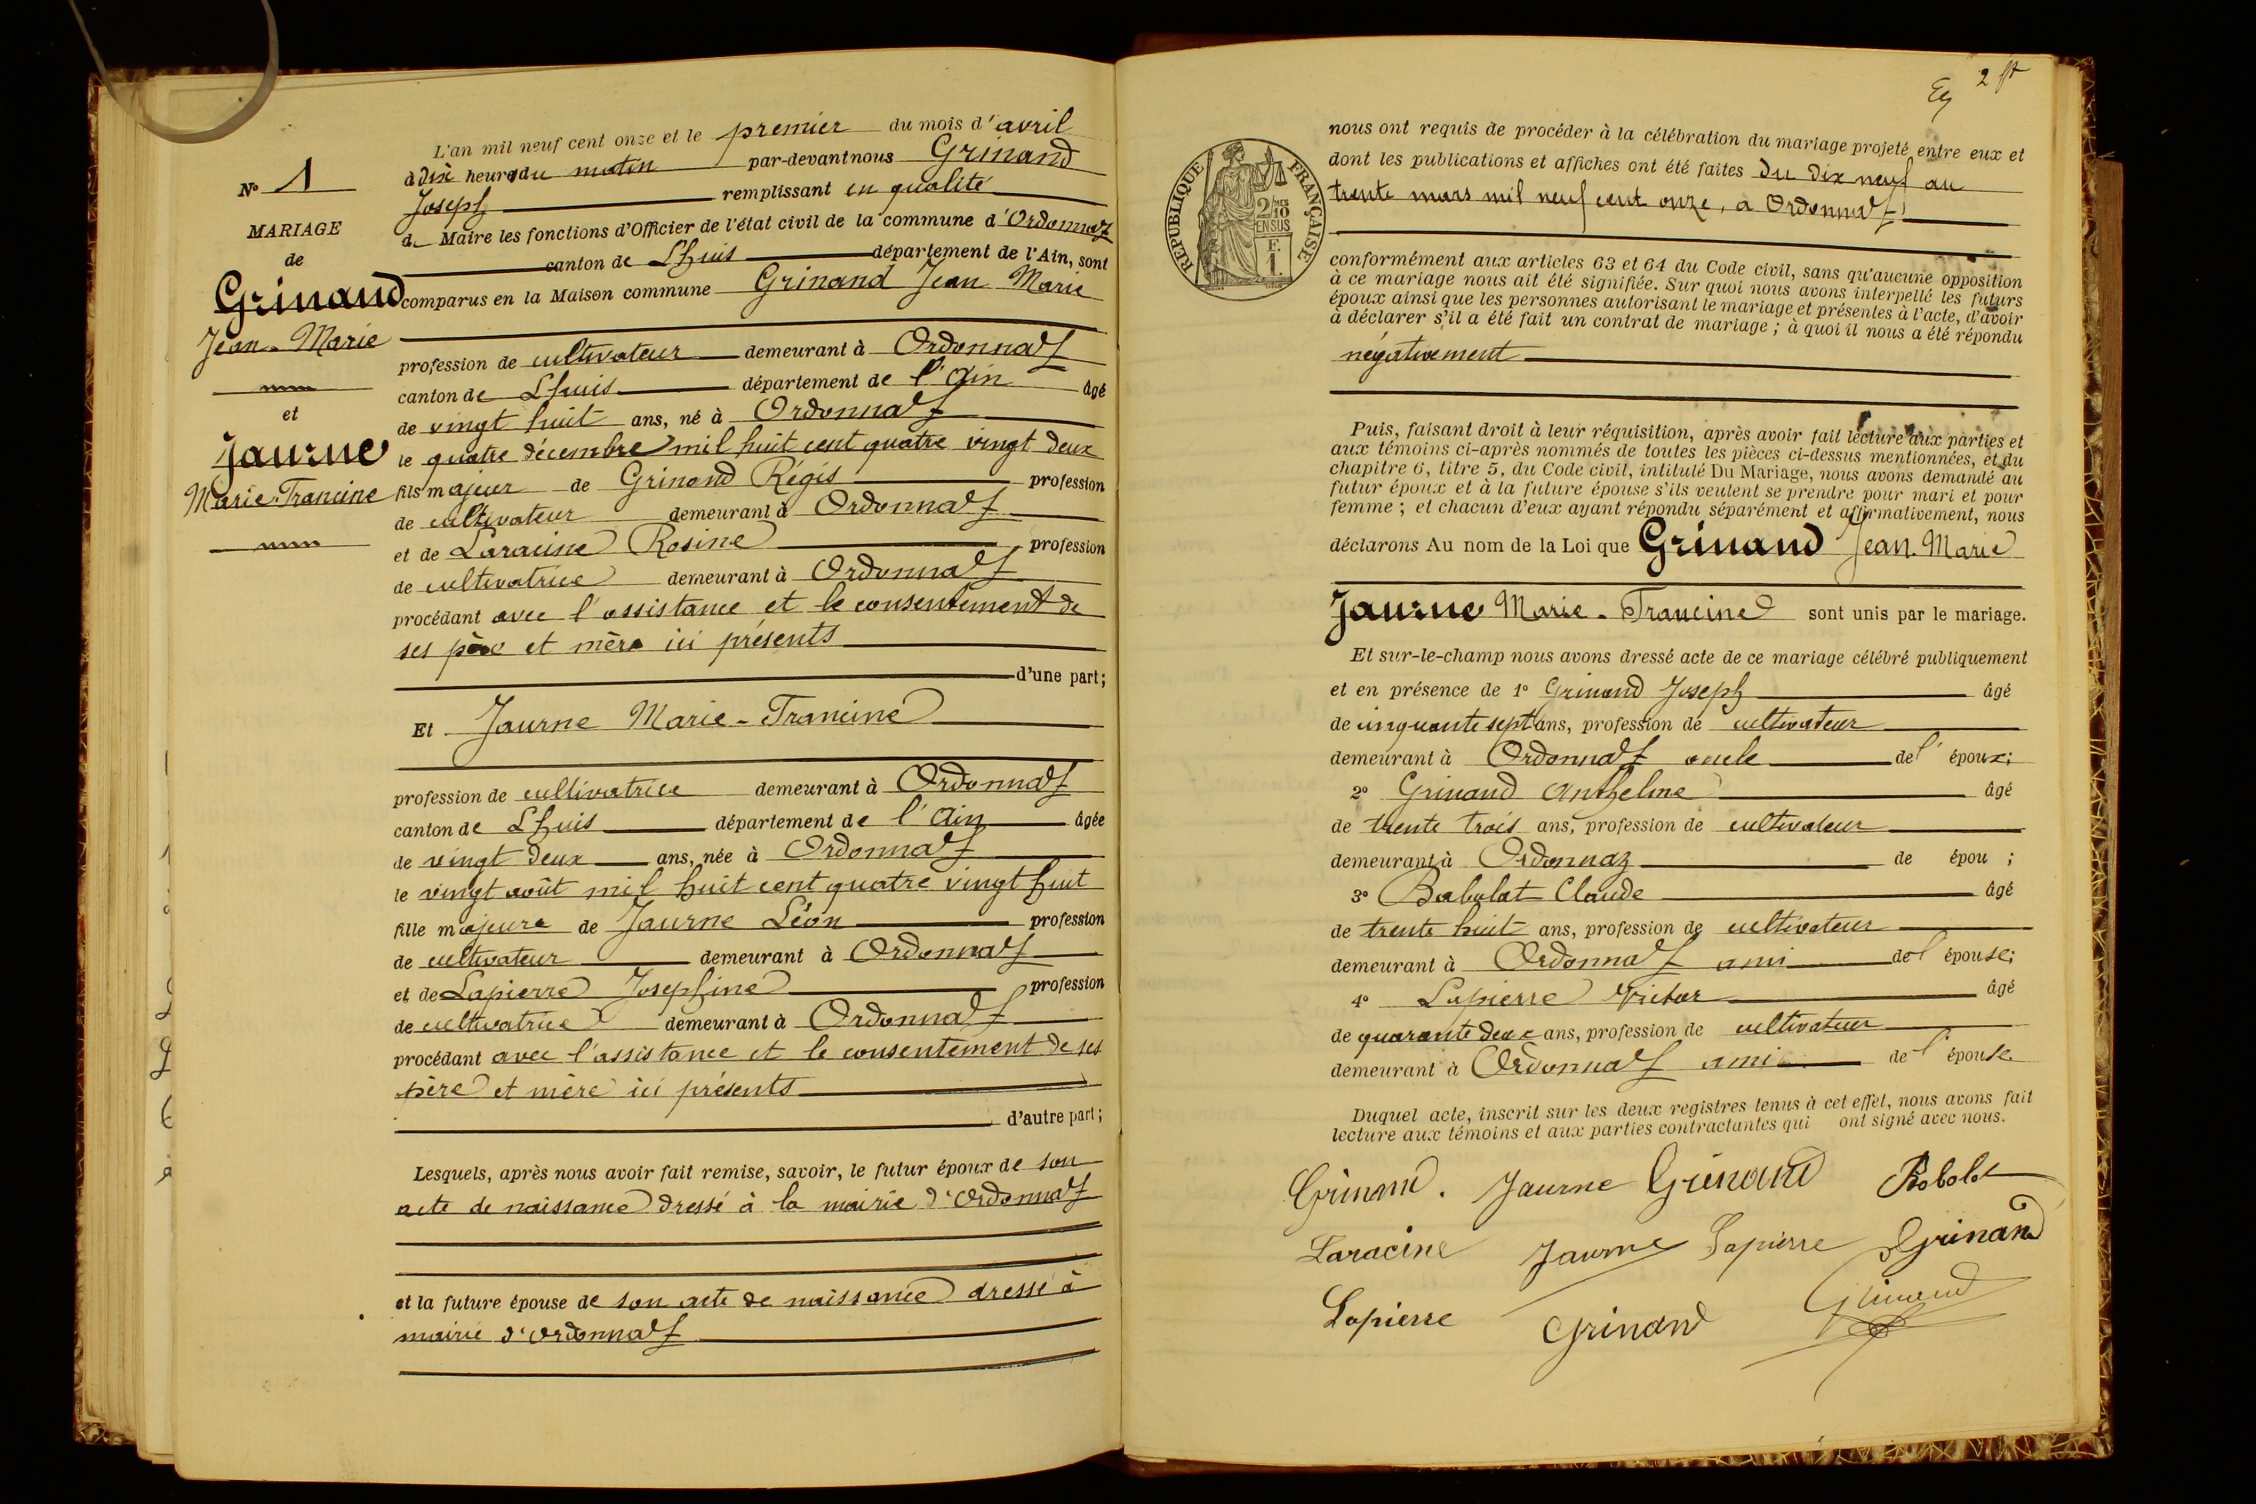 N° 1
MARIAGE
de
Grinand
Jean-Marie
et
Jaurne
Marie-Francine
L'an mil neuf cent onze et le premier du mois d'avril
à dix heures du matin par-devant nous Grinand
Joseph remplissant en qualité
de Maire les fonctions d'Officier de l'état civil de la commune d'Ordonnaz
canton de Lhuis département de l'Ain, sont
comparus en la Maison commune Grinand Jean Marie
profession de cultivateur demeurant à Ordonnaz
canton de Lhuis département de l'Ain âgé
de vingt huit ans, né à Ordonnaz
le quatre décembre mil huit cent quatre vingt deux
fils majeur de Grinand Régis profession
de cultivateur demeurant à Ordonnaz
et de Laracine Rosine profession
de cultivatrice demeurant à Ordonnaz
procédant avec l'assistance et le consentement de
ses père et mère ici présents
d'une part;
Et Jaurne Marie-Francine
profession de cultivatrice demeurant à Ordonnaz
canton de Lhuis département de l'Ain âgée
de vingt deux ans, née à Ordonnaz
le vingt août mil huit cent quatre vingt huit
fille majeure de Jaurne Léon profession
de cultivateur demeurant à Ordonnaz
et de Lapierre Josephine profession
de cultivatrice demeurant à Ordonnaz
procédant avec l'assistance et le consentement de ses
père et mère ici présents
d'autre part;
Lesquels, après nous avoir fait remise, savoir, le futur époux de son
acte de naissance dressé à la mairie d'Ordonnaz
et la future épouse de son acte de naissance dressé à
mairie d'Ordonnaz
2
RÉPUBLIQUE FRANÇAISE
2/10
EN SUS
F.
1.
nous ont requis de procéder à la célébration du mariage projeté entre eux et
dont les publications et affiches ont été faites du dix neuf au
trente mars mil neuf cent onze, à Ordonnaz
conformément aux articles 63 et 64 du Code civil, sans qu'aucune opposition
à ce mariage nous ait été signifiée. Sur quoi nous avons interpellé les futurs
époux ainsi que les personnes autorisant le mariage et présentes à l'acte, d'avoir
à déclarer s'il a été fait un contrat de mariage; à quoi il nous a été répondu
négativement
Puis, faisant droit à leur réquisition, après avoir fait lecture aux parties et
aux témoins ci-après nommés de toutes les pièces ci-dessus mentionnées, et du
chapitre 6, titre 5, du Code civil, intitulé Du Mariage, nous avons demandé au
futur époux et à la future épouse s'ils veulent se prendre pour mari et pour
femme; et chacun d'eux ayant répondu séparément et affirmativement, nous
déclarons Au nom de la Loi que Grinand Jean-Marie
Jaurne Marie-Francine sont unis par le mariage.
Et sur-le-champ nous avons dressé acte de ce mariage célébré publiquement
et en présence de 1° Grinand Joseph âgé
de cinquante sept ans, profession de cultivateur
demeurant à Ordonnaz oncle de l'époux;
2° Grinand Anthelme âgé
de trente trois ans, profession de cultivateur
demeurant à Ordonnaz de épou ;
3° Babolat Claude âgé
de trente huit ans, profession de cultivateur
demeurant à Ordonnaz ami de l'épouse;
4° Lapierre Victor âgé
de quarante deux ans, profession de cultivateur
demeurant à Ordonnaz ami de l'épouse
Duquel acte, inscrit sur les deux registres tenus à cet effet, nous avons fait
lecture aux témoins et aux parties contractantes qui ont signé avec nous.
Grinand. Jaurne Grinand Babolat
Laracine Jaurne Lapierre Grinand
Lapierre Grinand Grinand